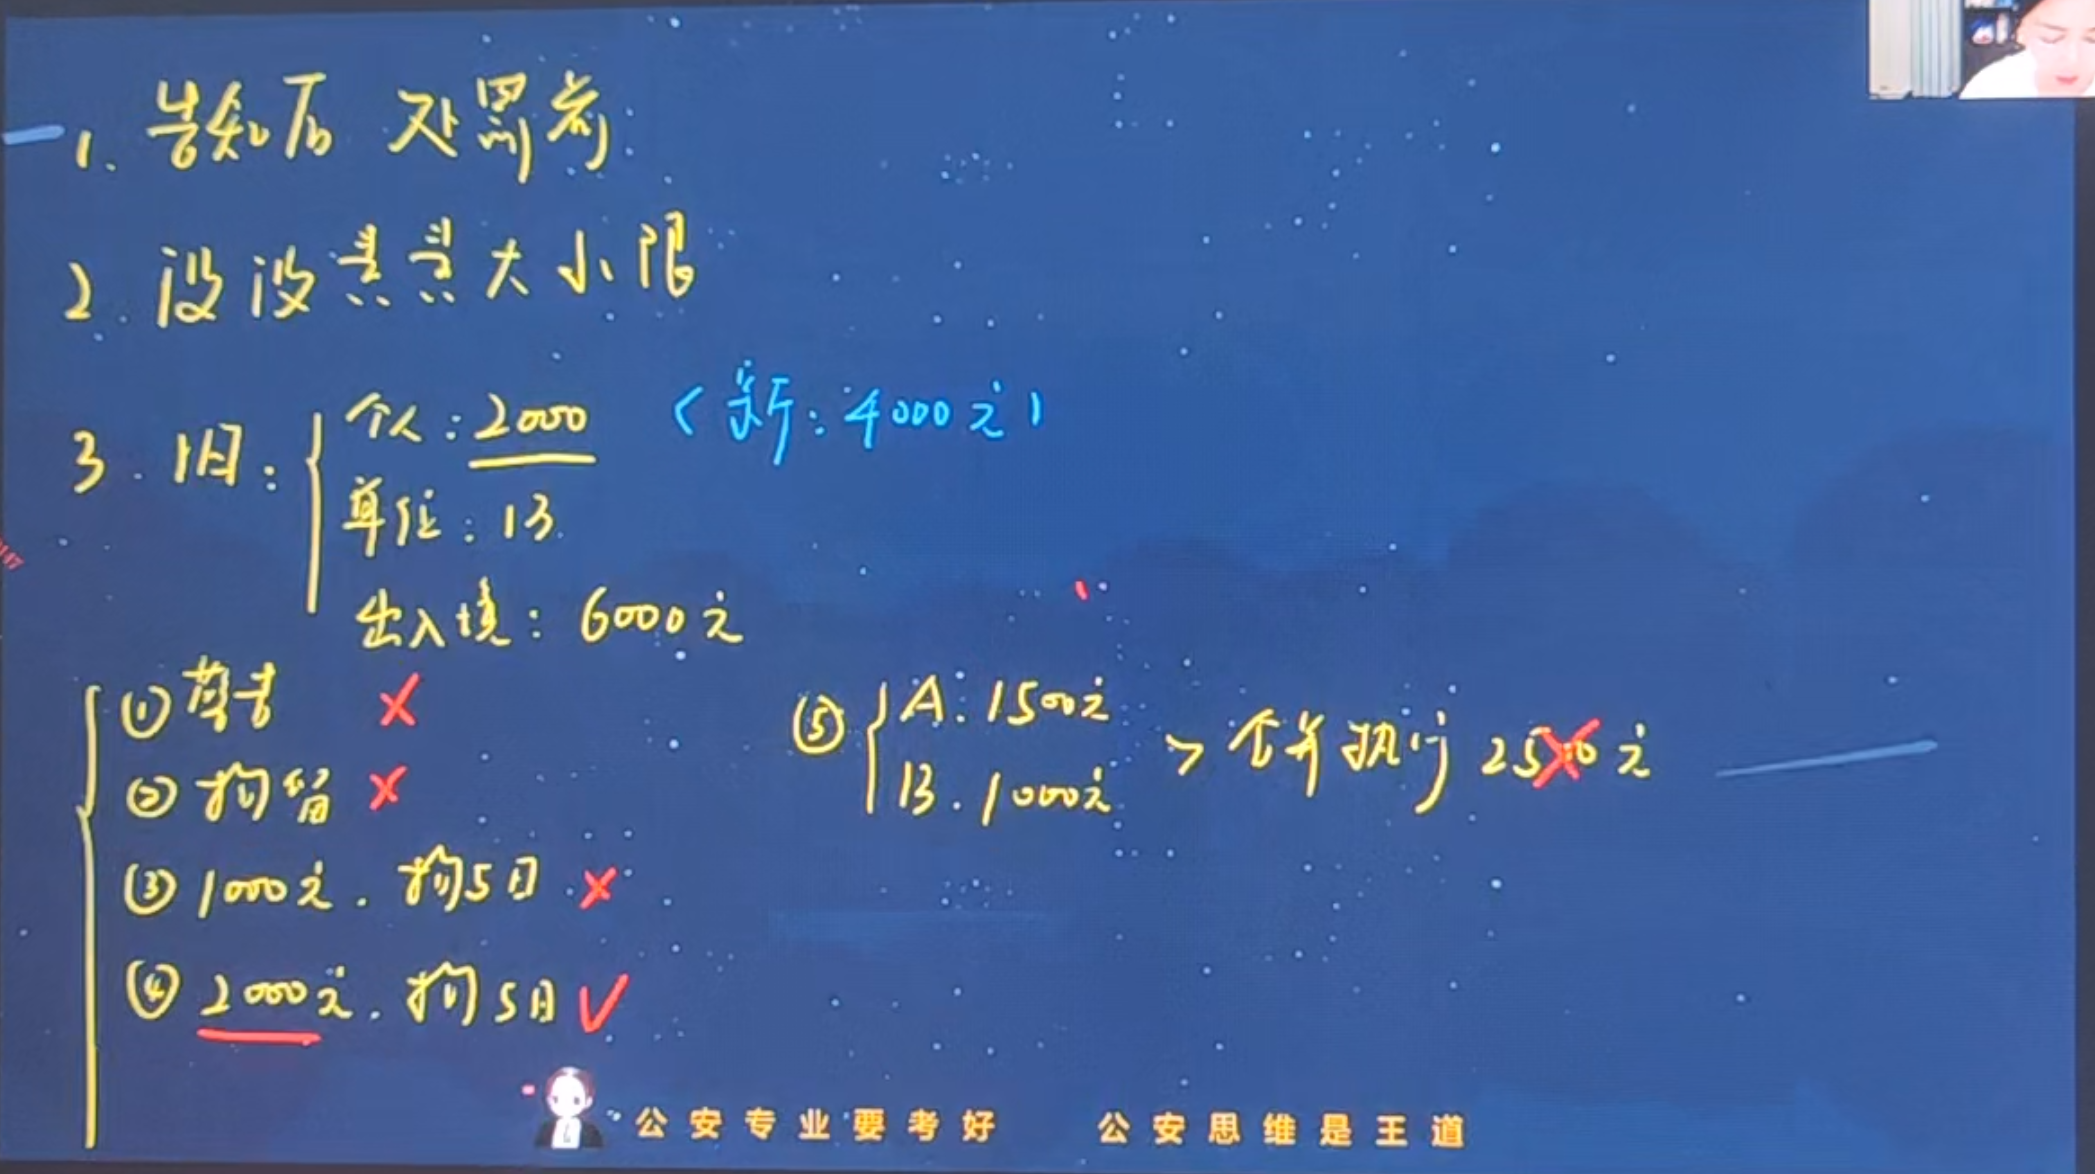 1. 告知后 处罚前
2. 没没責責大小限
3. 旧:
个人:2000 (新:4000元)
单位:1万
出入境:6000元
①警告 ×
②拘留 ×
③1000元. 拘5日 ×
④2000元. 拘5日 √
⑤ A. 1500元
B. 1000元
> 合并执行 2500元 ×
公安专业要考好 公安思维是王道